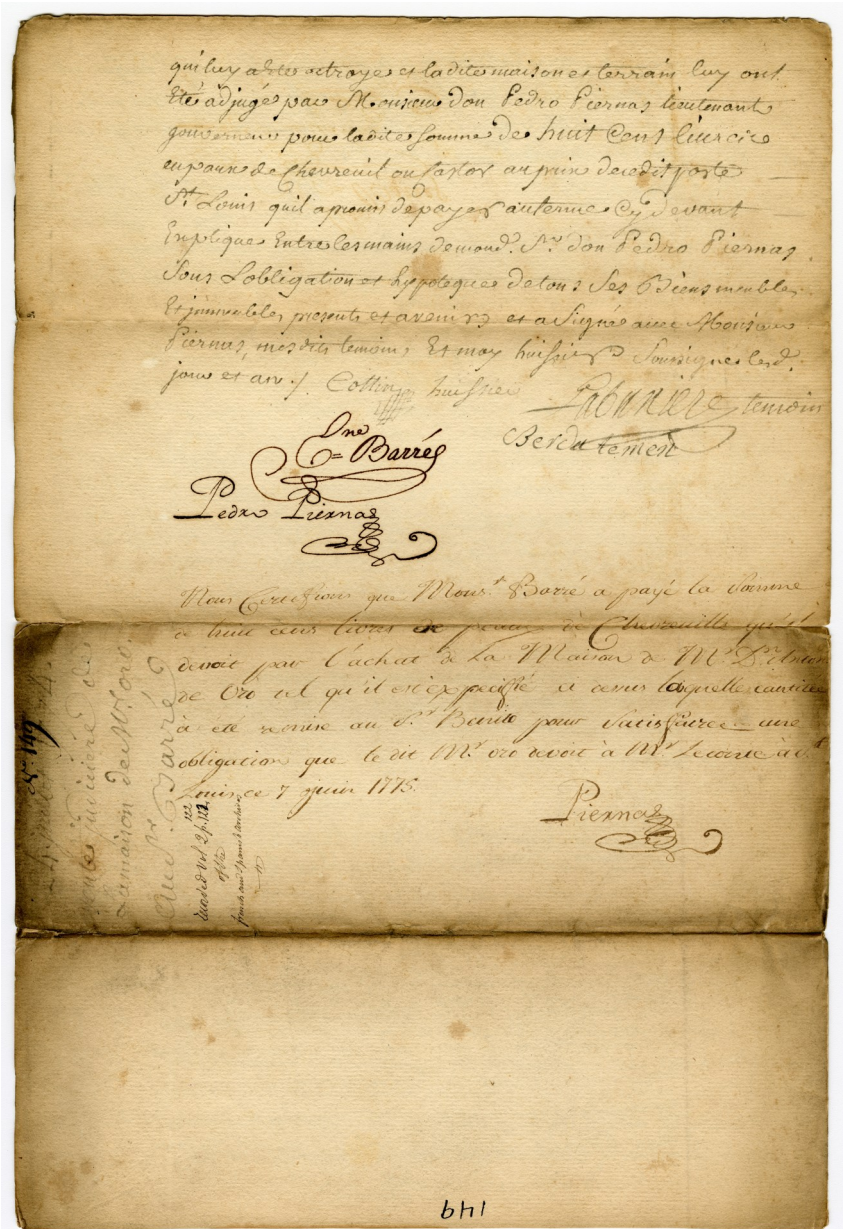 qui luy a été octroyé et la dite maison et terrain luy ont
Eté adjugé par Monsieur don Pedro Piernas lieutenant
gouverneur pour ladite Somme de huit Cens livres
en peaux de Chevreuil ou Castor au prix de cedit poste
St. Louis quil a promis de payer au terme Cy devant
Expliqué Entre les mains de mond. Sr. don Pedro Piernas
Sous L'obligation et hypoteque de tous Ses Biens meubles
Et jmmeubles presents et avenirs et a Signé avec Monsieur
Piernas, mesdits temoins Et moy huissier Soussigné lesd.
jour et an ./. Cottin huissier
Labuxière temoin
Ene Barré
Pedro Piernas
Nous Certifions que Monsr. Barré a payé la Somme
a huit cens livres de peaux de Chevreuille qu'il
devoit par l'achat de La Maison de Mr. Dn. Anton
de Oro tel qu'il est expecifié ci desus laquelle cantite
à été remise au Sr. Benito pour Satisfairee une
obligation que le dit Mr. oro devoit à Mr Lecomte a St
Louis, ce 7 juin 1775.
Piernas
No. 149
Vente judiciere de
La maison de Mr. oro.
Au Sr. Barré
Recorded Vol 2 p. 122
of the
french and Spanish Archives
149